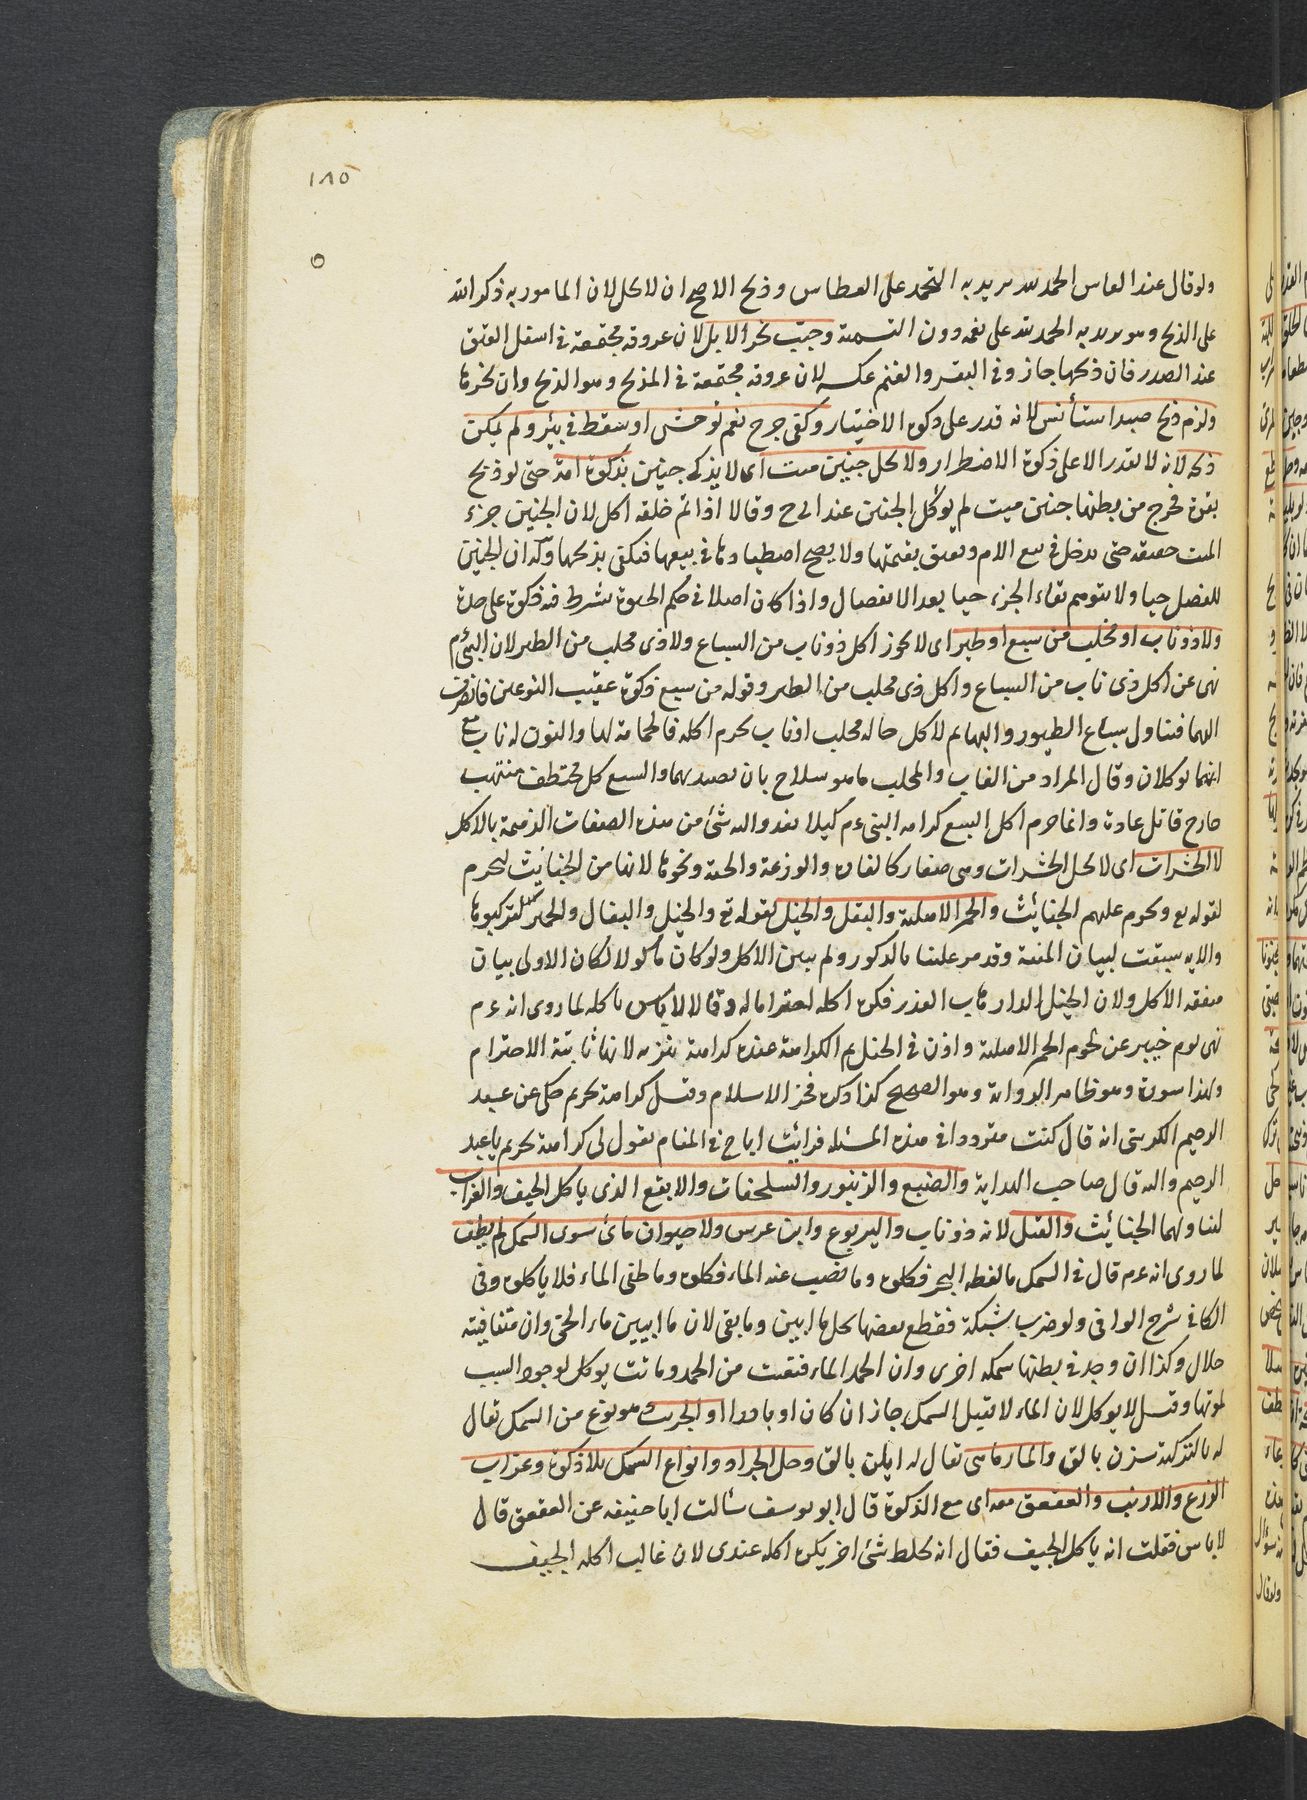 ١٨٥
ولو قال عند العاس الحمد لله يريد به التحمد على العطاس وذبح الاصح ان لا يحل لان المامور به ذكر الله
على الذبح وهو يريد به الحمد لله على نعمه دون التسمية وحبب نحر الابل لان عروقه مجتمعة في اسفل العنق
عند الصدر فان ذبحها جاز وفي البقر والغنم عكسه لان عروقه مجتمعة في المذبح وهو الذبح وان نحرها
ولزم ذبح صيد استأنس لانه قدر على ذكوة الاختيار وكفى جرح نعم توحش او سقط في بئر ولم يمكن
ذبحه لانه لا يقدر الا على ذكوة الاضطرار ولا يحل جنين ميت اى لا يذكى جنين بذكوة امه حتى لو ذبح
بقرة فخرج من بطنها جنين ميت لم يوكل الجنين عند ابي ح وقالا اذا تم خلقه اكل لان الجنين جزء
الميت حقيقة حتى يدخل في بيع الام ويعتق بعتقها ولا يصح اصطيادها في بيعها فيكتفى بذبحها وله ان الجنين
ينفصل حيا ولا يتوهم بقاء الجزء حيا بعد الانفصال واذا كان اصلا في حكم الحيوة يشترط فيه ذكوة على حدة
ولا ذو ناب او مخلب من سبع او طير اى لا يجوز اكل ذو ناب من السباع ولا ذى مخلب من الطير لان النبي ءم
نهى عن اكل ذى ناب من السباع واكل ذى مخلب من الطير وقوله من سبع ذكره عقيب النوعين فانصرف
اليهما فيتناول سباع الطيور والبهايم لا كل ما له مخلب او ناب يحرم اكله فالحمامة لها والنون له ناب مع
انهما يوكلان وقال المراد من الناب والمخلب ما هو سلاح بان يصيد بهما والسبع كل مختطف منتهب
جارح قاتل عادة وانما حرم اكل السبع كرامة لبني ءم كيلا يعدو اليه شئ من هذه الصفات الذميمة بالاكل
لا الحشرات اى لا يحل الحشرات وهى صغار كالفارة والوزغة والحية ونحوها لانها من الخبائث فيحرم
لقوله تع ويحرم عليهم الخبائث والحمر الاهلية والبغل والخيل لقوله تع والخيل والبغال والحمير لتركبوها
والايه سيقت لبيان المنة وقد من علينا بالركوب ولم يبين الاكل ولو كان ماكولا لكان الاولى بيان
منفعة الاكل ولان الخيل الة ارهاب العدو فكره اكله احتراما له وقالا لا باس باكله لما روى انه ءم
نهى يوم خيبر عن لحوم الحمر الاهلية واذن في الخيل ثم الكراهة عنده كراهة تنزيه لانها ثابتة الاحترام
ولهذا سوره وهو ظاهر الرواية وهو الصحيح كذا ذكره فخر الاسلام وقيل كراهة تحريم حكى عن عبد
الرحيم الكرمنى انه قال كنت مترددا في هذه المسئله فرائيت ابا ح في المنام يقول لى كراهة تحريم يا عبد
الرحيم واليه قال صاحب الهداية والضبع والزنبور والسلحفات والابقع الذى ياكل الجيف والغراب
لتناولهما الخبائث والفيل لانه ذو ناب واليربوع وابن عرس ولا حيوان مائ سوى السمك لم يطف
لما روى انه ءم قال في السمك ما لفظه البحر فكلوه وما نضب عنه الماء فكلوه وما طفى الماء فلا ياكلوه وفى
الكافى شرح الوافى ولو ضرب بشبكة فقطع بعضها يحل ما ابين وما بقى لان ما ابين من الحى وان متنا فيته
حلال وكذا ان وجد في بطنها سمكه اخرى وان الجمد الماء فبقيت من الجمد وماتت يوكل لوجود السبب
لموتها وقيل لا يوكل لان الماء لا يقتل السمك جاز ان كان او باردا والجريث هو نوع من السمك يقال
له بالتركية سزن بالق والمارماهى يقال له ايلن بالق وحل الجراد وانواع السمك بلا ذكوة وغراب
الزرع والارنب والعقعق معه اى مع الذكوة قال ابو يوسف سألت ابا حنيفه عن العقعق قال
لا باس فقلت انه ياكل الجيف فقال انه يخلط شئ اخر يكره اكله عندى لان غالب أكله الجيف